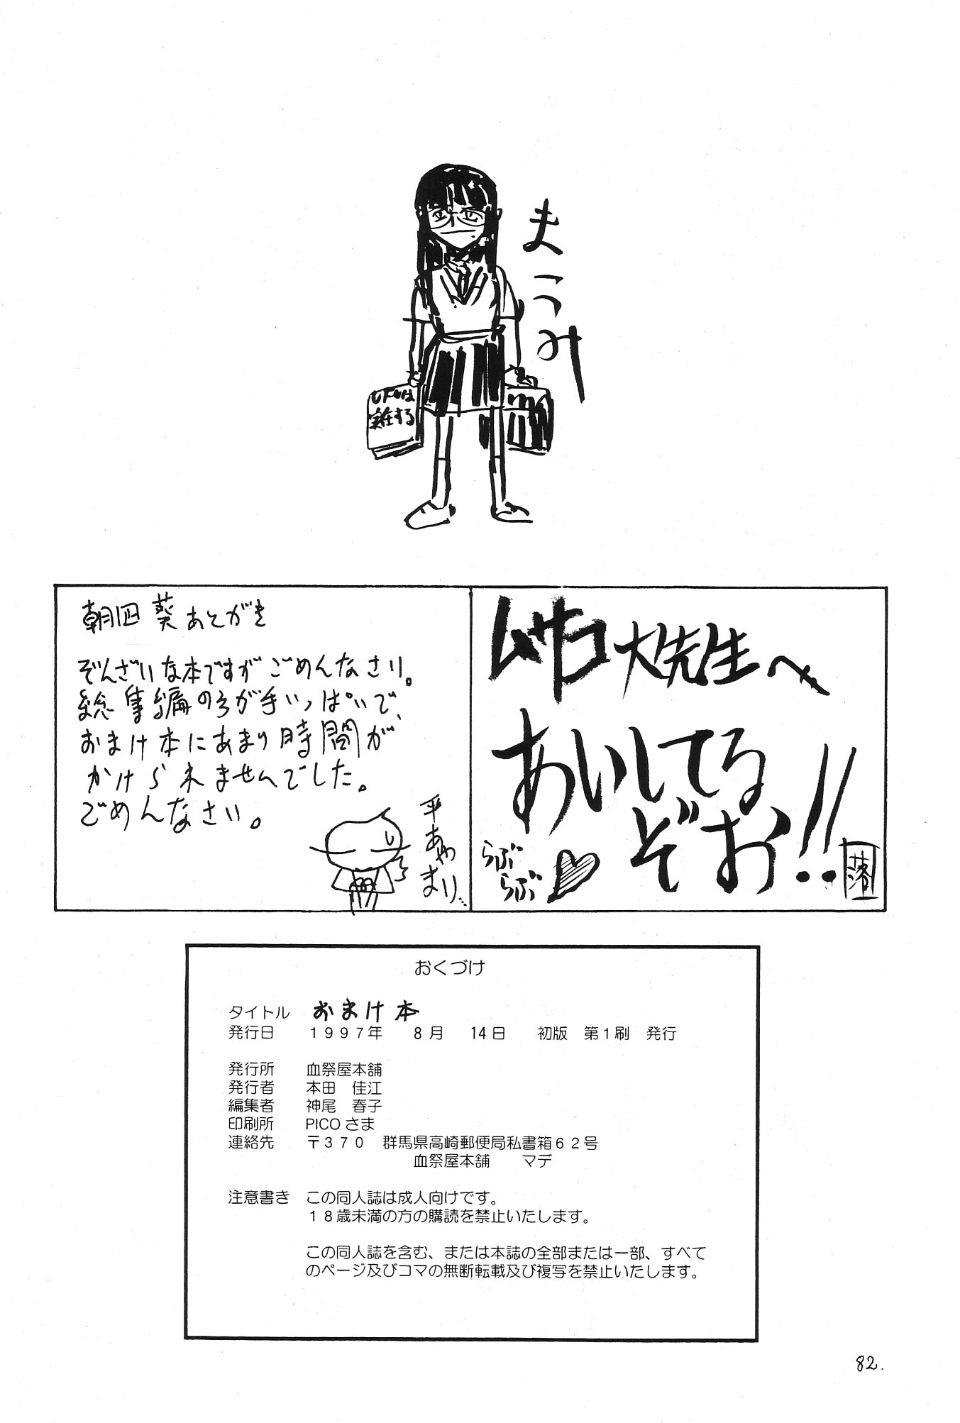 まこみ
UFOは
実在する
朝凪 葵 あとがき
ぞんざいな本ですがごめんなさい。
総集編の方が手いっぱいで、
おまけ本にあまり時間が
かけられませんでした。
ごめんなさい。
平あやまり…
ムサコ大先生へ
あいしてる
ぞお!!
らぶ
らぶ
落
おくづけ
タイトル おまけ本
発行日 1997年 8月 14日 初版 第1刷 発行
発行所 血祭屋本舗
発行者 本田 佳江
編集者 神尾 春子
印刷所 PICOさま
連絡先 〒370 群馬県高崎郵便局私書箱62号
血祭屋本舗 マデ
注意書き この同人誌は成人向けです。
18歳未満の方の購読を禁止いたします。
この同人誌を含む、または本誌の全部または一部、すべて
のページ及びコマの無断転載及び複写を禁止いたします。
82.